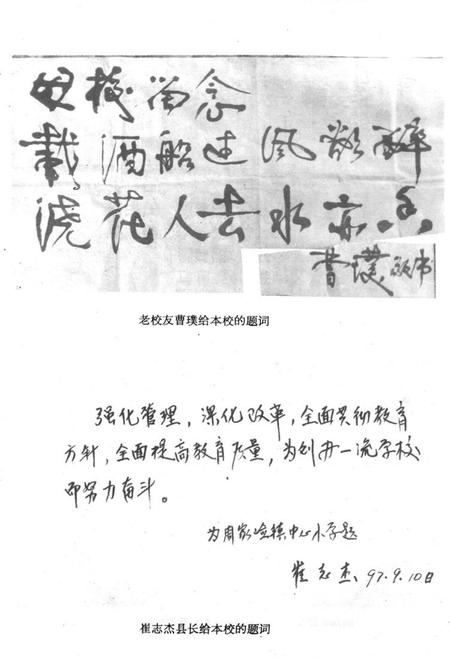 母校留念
载酒船过风欲醉
浇花人去水亦香
曹璞敬书
老校友曹璞给本校的题词
强化管理，深化改革，全面贯彻教育
方针，全面提高教育质量，为创办一流学校
而努力奋斗。
中心小学题
崔志杰 97.9.10日
崔志杰县长给本校的题词